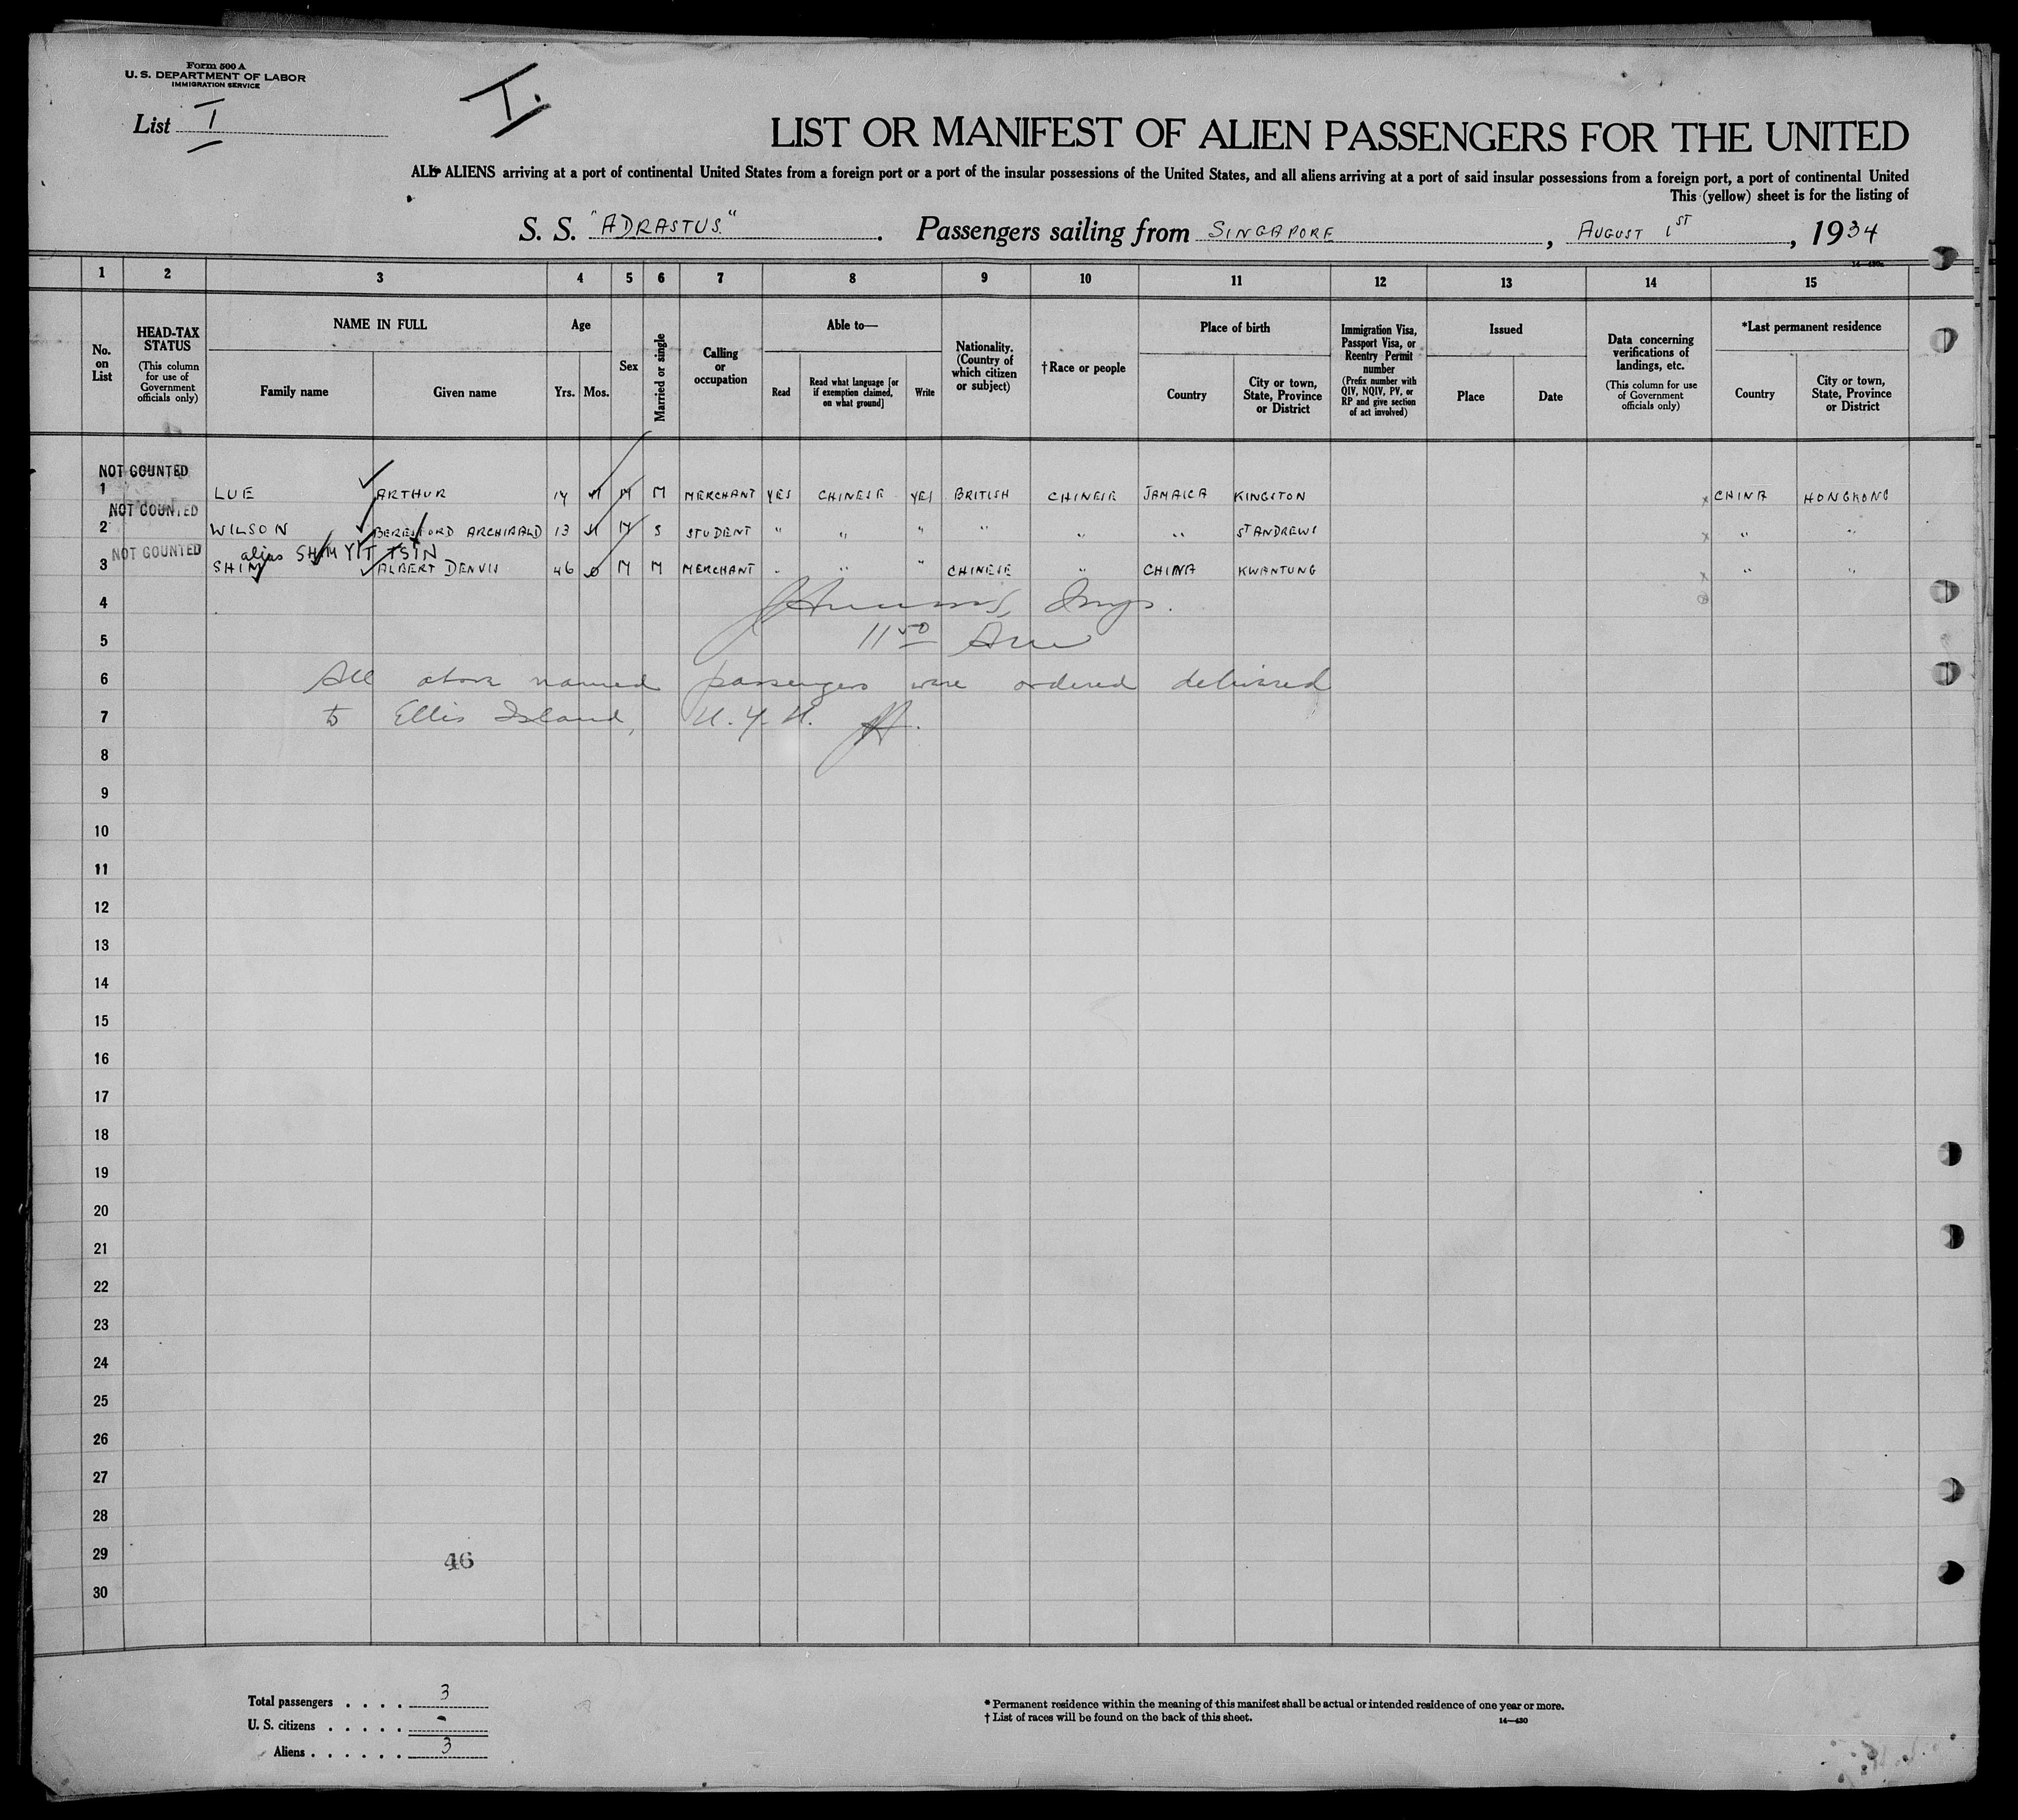 Form 500 A
U. S. DEPARTMENT OF LABOR
IMMIGRATION SERVICE
List I
I.
LIST OR MANIFEST OF ALIEN PASSENGERS FOR THE UNITED
ALL ALIENS arriving at a port of continental United States from a foreign port or a port of the insular possessions of the United States, and all aliens arriving at a port of said insular possessions from a foreign port, a port of continental United
This (yellow) sheet is for the listing of
S. S. "ADRASTUS". Passengers sailing from SINGAPORE, AUGUST 1ST, 1934
1 2 3 4 5 6 7 8 9 10 11 12 13 14 15
No. on List
HEAD-TAX STATUS (This column for use of Government officials only)
NAME IN FULL
Family name Given name
Age
Yrs. Mos.
Sex
Married or single
Calling or occupation
Able to—
Read Read what language [or if exemption claimed, on what ground] Write
Nationality. (Country of which citizen or subject)
†Race or people
Place of birth
Country City or town, State, Province or District
Immigration Visa, Passport Visa, or Reentry Permit number (Prefix number with QIV, NQIV, PV, or RP and give section of act involved)
Issued
Place Date
Data concerning verifications of landings, etc. (This column for use of Government officials only)
*Last permanent residence
Country City or town, State, Province or District
NOT COUNTED
1 LUE ARTHUR M M MERCHANT YES CHINESE YES BRITISH CHINESE JAMAICA KINGSTON x CHINA HONGKONG
NOT COUNTED
2 WILSON BERESFORD ARCHIBALD 13 M S STUDENT " " " " " " ST ANDREWS x " "
NOT COUNTED alias SHIM YIT TSIN
3 SHIM ALBERT DENVIS 46 M M MERCHANT " " " CHINESE " CHINA KWANTUNG x " "
4 Insp.
5 11 50 Am
6 All above named passengers were ordered delivered
7 to Ellis Island, N.Y.H.
8
9
10
11
12
13
14
15
16
17
18
19
20
21
22
23
24
25
26
27
28
29 46
30
Total passengers . . . . 3
U. S. citizens . . . . . -
Aliens . . . . . . 3
* Permanent residence within the meaning of this manifest shall be actual or intended residence of one year or more.
† List of races will be found on the back of this sheet.
14—430